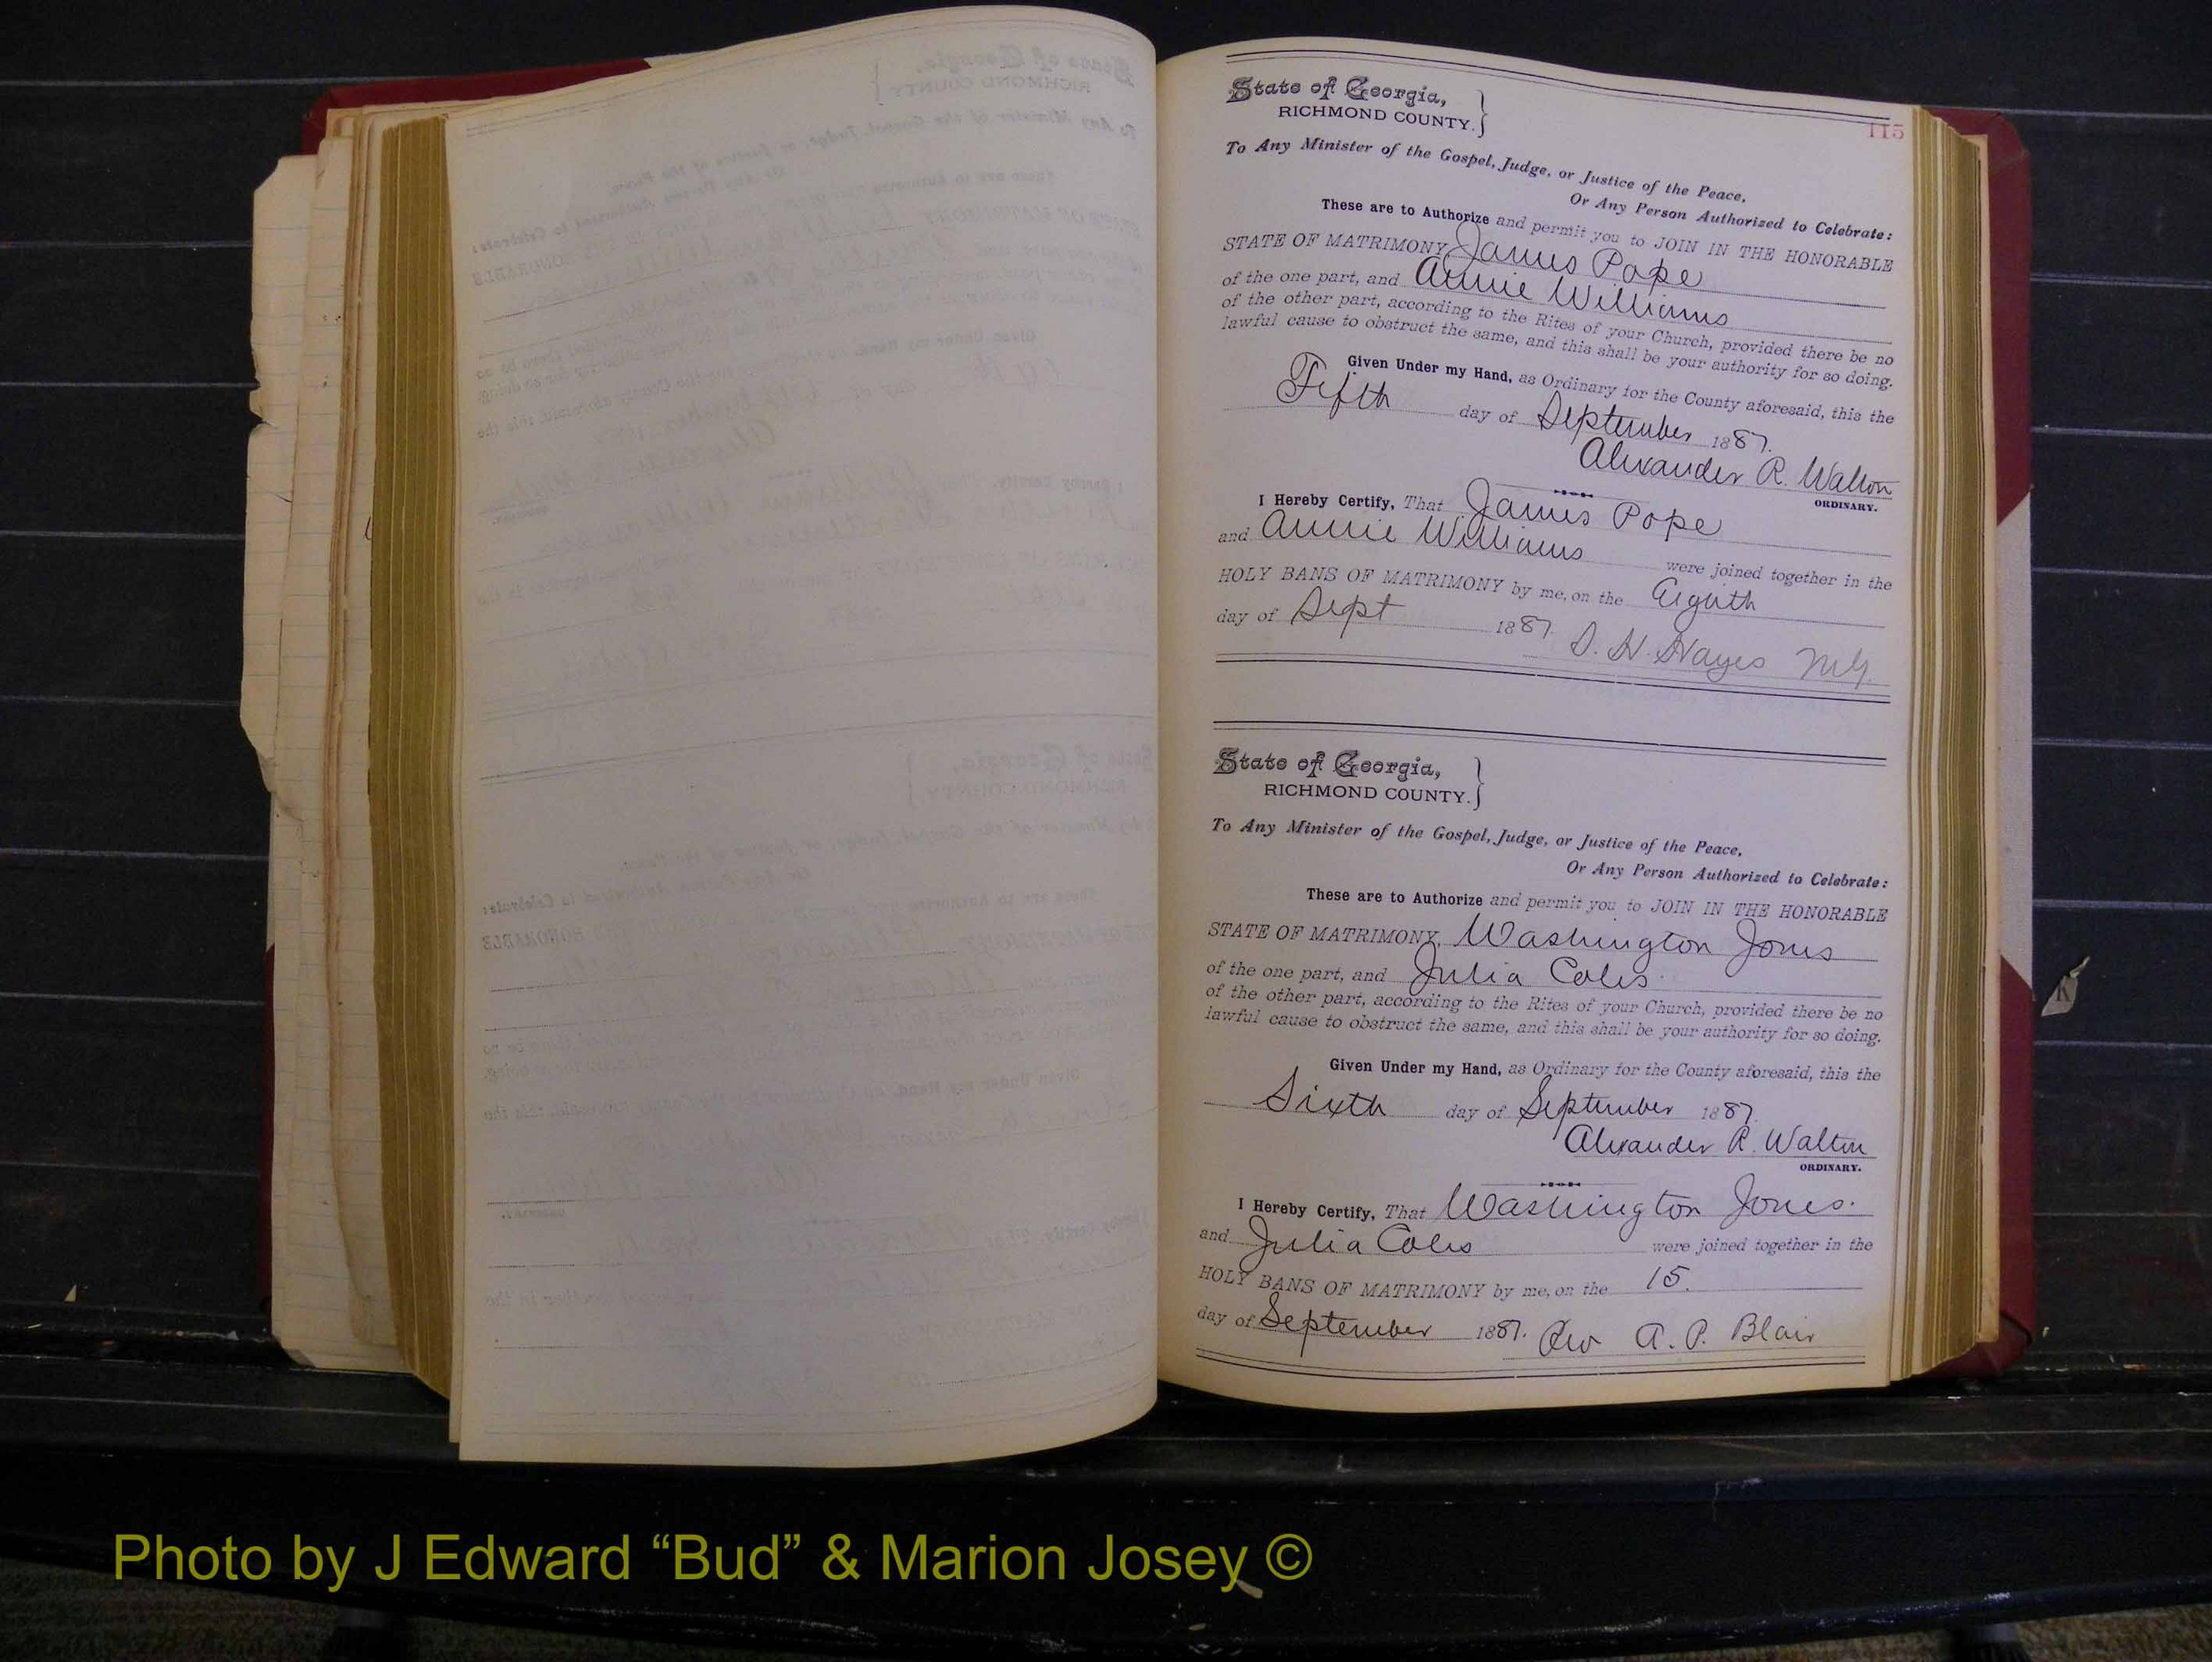 115
State of Georgia,
RICHMOND COUNTY.
To Any Minister of the Gospel, Judge, or Justice of the Peace,
Or Any Person Authorized to Celebrate:
These are to Authorize and permit you to JOIN IN THE HONORABLE
STATE OF MATRIMONY, James Pope
of the one part, and Annie Williams
of the other part, according to the Rites of your Church, provided there be no
lawful cause to obstruct the same, and this shall be your authority for so doing.
Given Under my Hand, as Ordinary for the County aforesaid, this the
Fifth day of September 1887.
Alexander R. Walton
ORDINARY.
I Hereby Certify, That James Pope
and Annie Williams were joined together in the
HOLY BANS OF MATRIMONY by me, on the Eighth
day of Sept 1887.
S. H. Hayes M.G.
State of Georgia,
RICHMOND COUNTY.
To Any Minister of the Gospel, Judge, or Justice of the Peace,
Or Any Person Authorized to Celebrate:
These are to Authorize and permit you to JOIN IN THE HONORABLE
STATE OF MATRIMONY, Washington Jones
of the one part, and Julia Coles.
of the other part, according to the Rites of your Church, provided there be no
lawful cause to obstruct the same, and this shall be your authority for so doing.
Given Under my Hand, as Ordinary for the County aforesaid, this the
Sixth day of September 1887.
Alexander R. Walton
ORDINARY.
I Hereby Certify, That Washington Jones.
and Julia Coles were joined together in the
HOLY BANS OF MATRIMONY by me, on the 15.
day of September 1887. Rev A. P. Blair
Photo by J Edward “Bud” & Marion Josey ©